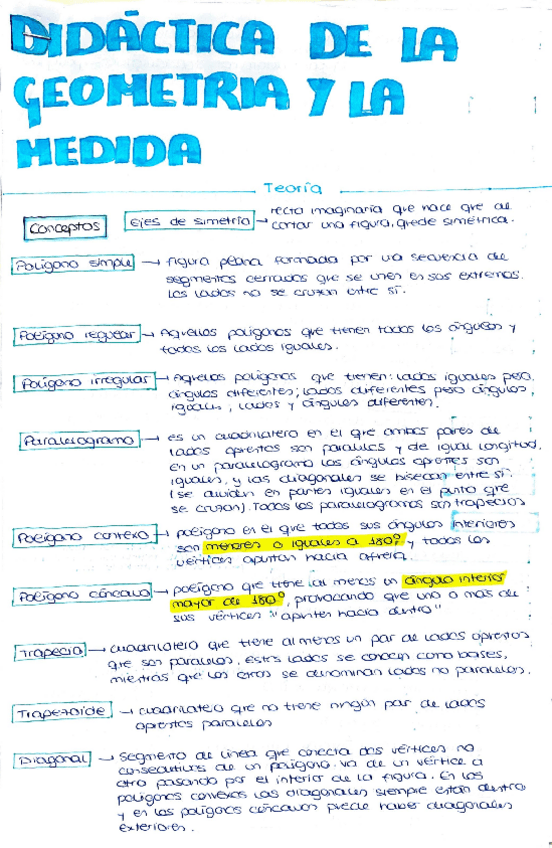 DIDÁCTICA DE LA
GEOMETRIA Y LA
MEDIDA
Teoría
Conceptos
Ejes de simetría → recta imaginaria que hace que al
cortar una figura, quede simétrica.
Polígono simple → figura plana formada por una secuencia de
segmentos cerrados que se unen en sus extremos.
Los lados no se cruzan entre sí.
Polígono regular → Aquellos polígonos que tienen todos los ángulos y
todos los lados iguales.
Polígono irregular → Aquellos polígonos que tienen: lados iguales pero
ángulos diferentes; lados diferentes pero ángulos
iguales, lados y ángulos diferentes.
Paralelogramo → es un cuadrilatero en el que ambos pares de
lados opuestos son paralelos y de igual longitud.
en un paralelogramo los ángulos opuestos son
iguales, y las diagonales se bisecan entre sí.
(se dividen en partes iguales en el punto que
se cruzan). Todos los paralelogramos son trapecios
Polígono convexo → polígono en el que todos sus ángulos interiores
son menores o iguales a 180º y todos los
vértices apuntan hacia afuera.
Polígono cóncavo → polígono que tiene al menos un ángulo interior
mayor de 180º, provocando que uno o mas de
sus vértices "apunten hacia dentro"
Trapecio → cuadrilatero que tiene al menos un par de lados opuestos
que son paralelos. estos lados se conocen como bases,
mientras que los otros se denominan lados no paralelos.
Trapezoide → cuadrilatero que no tiene ningún par de lados
opuestos paralelos
Diagonal → segmento de línea que conecta dos vértices no
consecutivos de un polígono. va de un vértice a
otro pasando por el interior de la figura. En los
polígonos convexos las diagonales siempre están dentro
y en los polígonos cóncavos puede haber diagonales
exteriores.